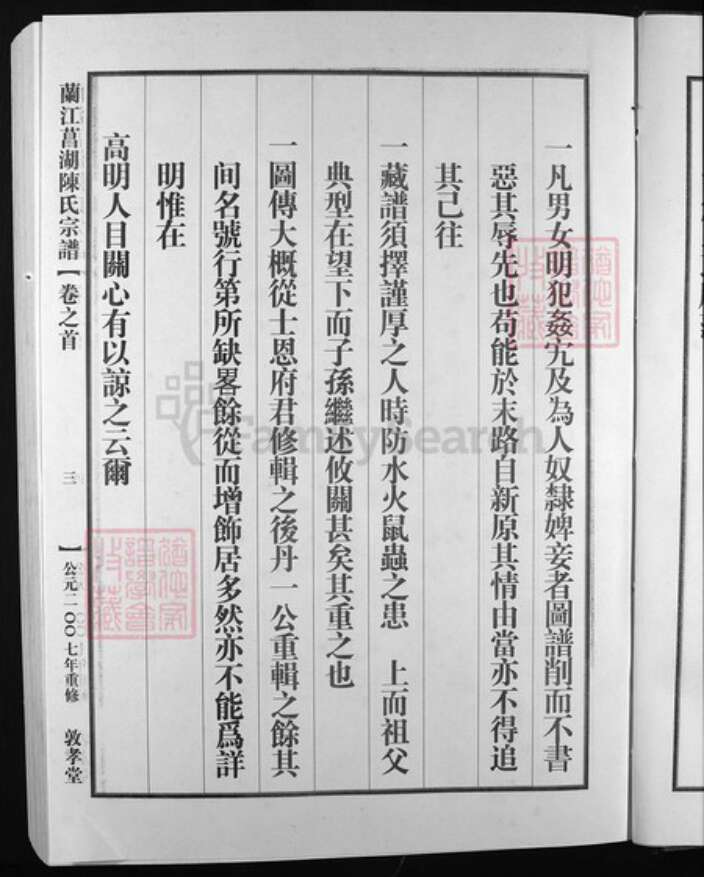 一凡男女明犯姦宄及為人奴隸婢妾者圖譜削而不書
惡其辱先也苟能於末路自新原其情由當亦不得追
其己往
一藏譜須擇謹厚之人時防水火鼠蟲之患　上而祖父
典型在望下而子孫繼述攸關甚矣其重之也
一圖傳大概從士恩府君修輯之後丹一公重輯之餘其
间名號行第所缺畧餘從而增飾居多然亦不能爲詳
明惟在
高明人目關心有以諒之云爾
蘭江菖湖陳氏宗譜【卷之首
三
】公元二〇〇七年重修
敦孝堂
FamilySearch